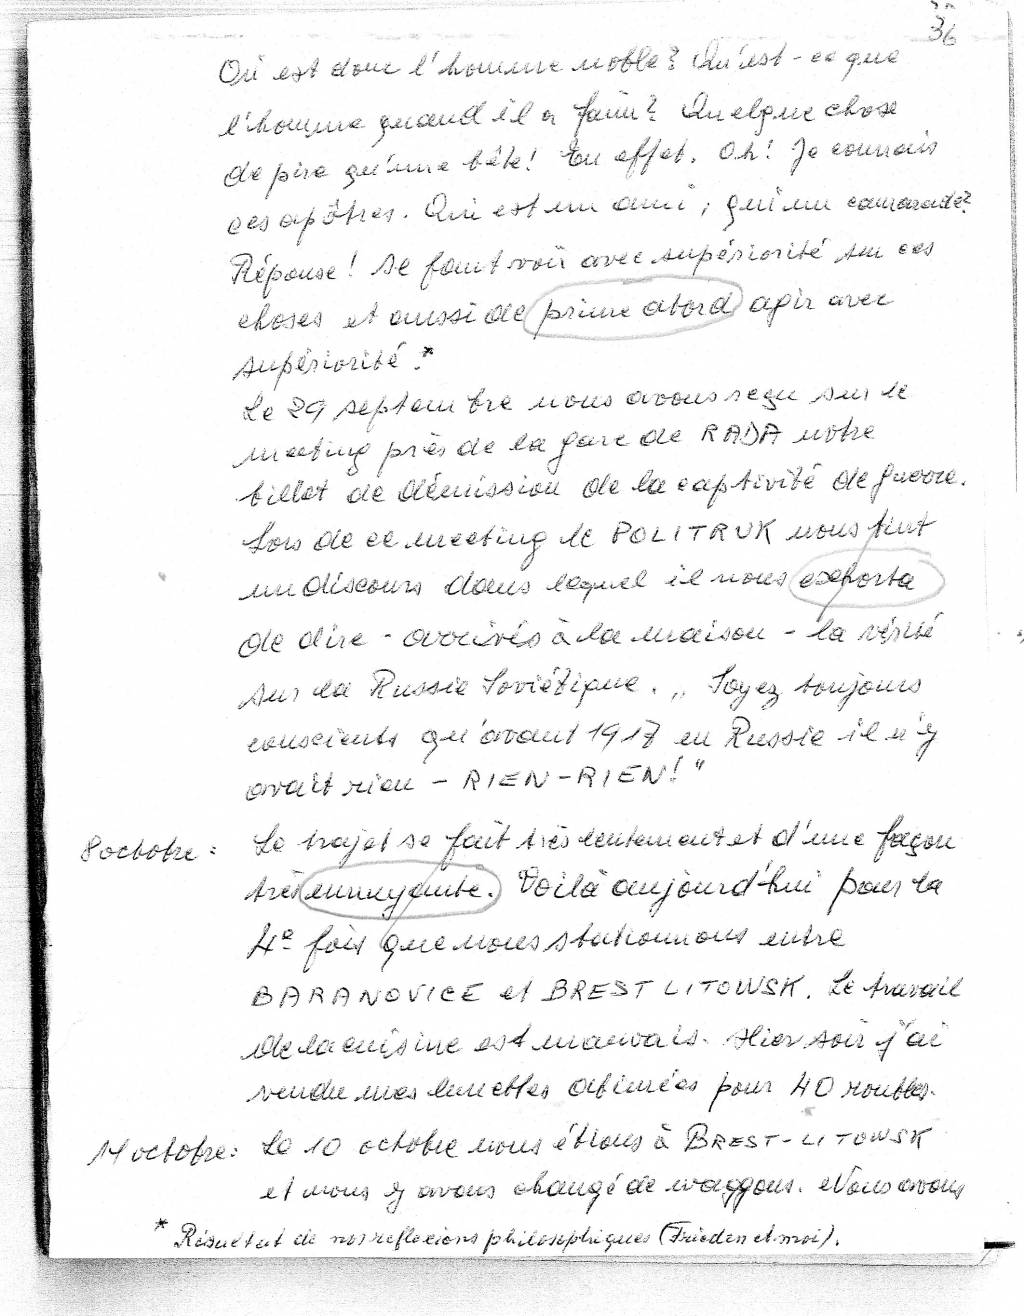 36
Où est donc l'homme noble? Qu'est-ce que
l'homme quand il a faim? Quelque chose
de pire qu'une bête! En effet. Oh! Je connais
ces apôtres. Qui est un ami, qui un camarade?
Réponse! Se faut voir avec supériorité sur ces
choses et aussi de prime abord agir avec
supériorité.*
Le 29 septembre nous avons reçu sur le
meeting près de la gare de RADA notre
billet de démission de la captivité de guerre.
Lors de ce meeting le POLITRUK nous tint
un discours dans lequel il nous exhorta
de dire - arrivés à la maison - la vérité
sur la Russie Soviétique. „Soyez toujours
conscients qu'avant 1917 en Russie il n'y
avait rien - RIEN-RIEN!"
8 octobre: Le trajet se fait très lentement et d'une façon
très ennuyante. Voilà aujourd'hui pour la
4e fois que nous stationnons entre
BARANOVICE et BREST LITOWSK. Le travail
de la cuisine est mauvais. Hier soir j'ai
vendu mes lunettes abimées pour 40 roubles.
14 octobre: Le 10 octobre nous étions à BREST-LITOWSK
et nous y avons changé de waggons. Nous avons
* Résultat de nos reflexions philosophiques (Frieden et moi).